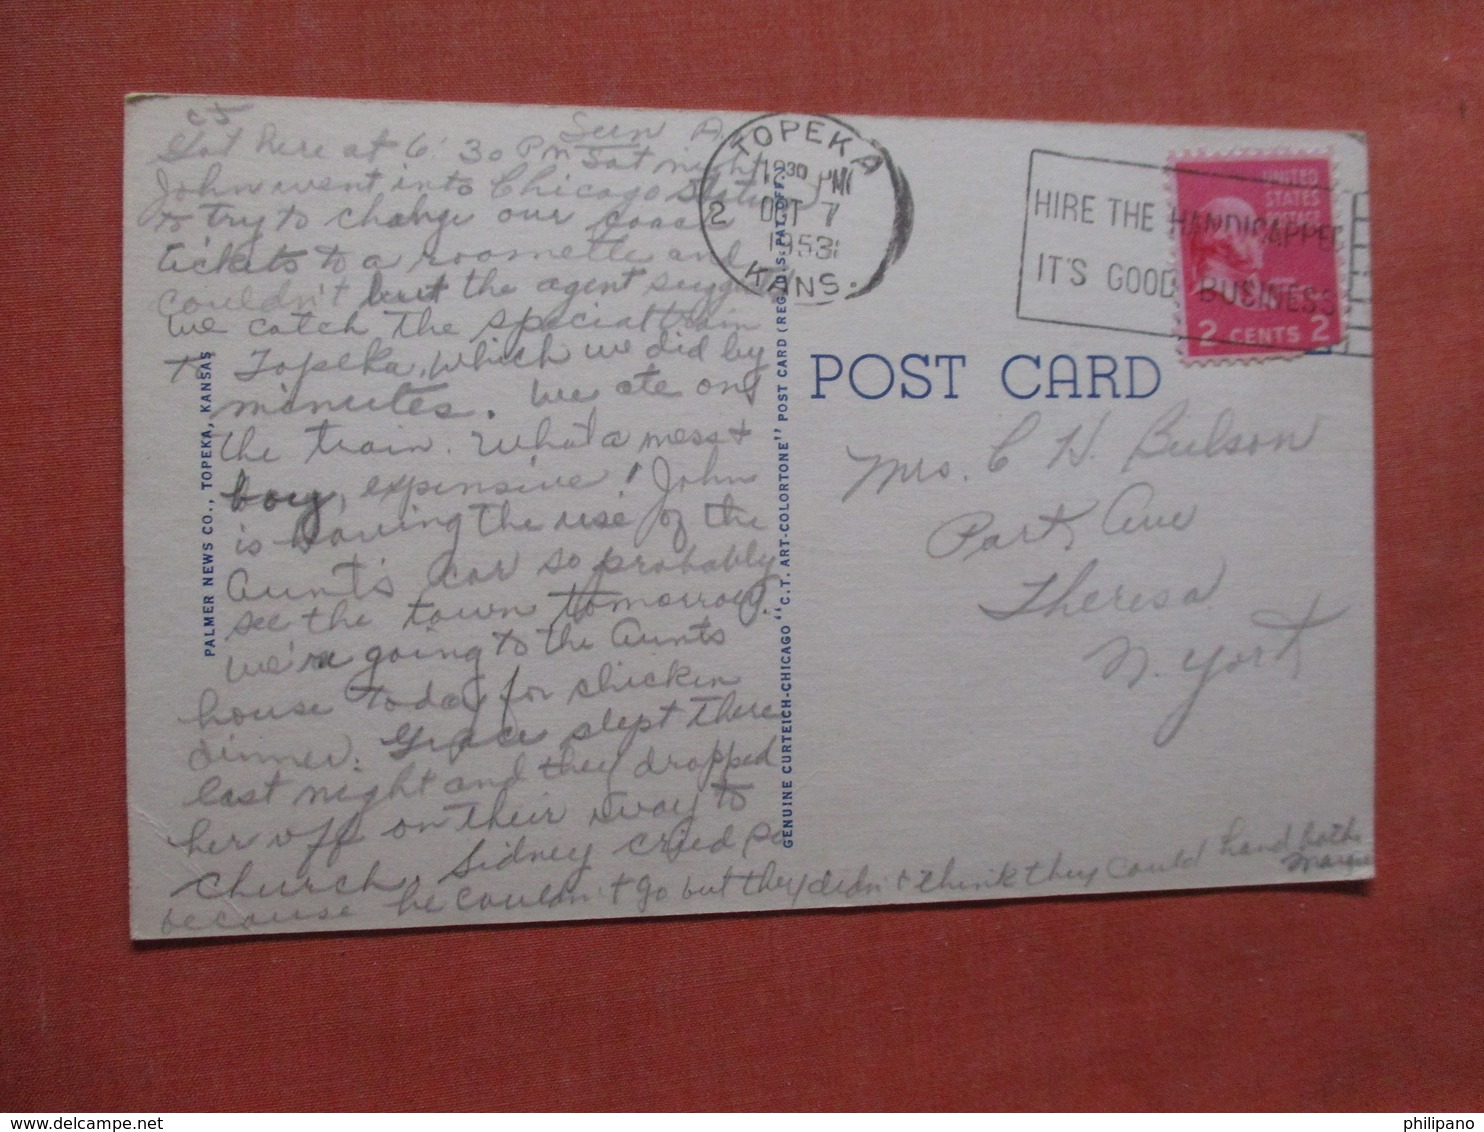 Sun A.
Got here at 6:30 PM Sat night
John went into Chicago Station
to try to change our coach
tickets to a roomette and
couldn't but the agent suggested
we catch the special train
to Topeka, which we did by
minutes. We ate on
the train. What a mess &
boy, expensive! John
is having the use of the
Aunt's car so probably
see the town tomorrow.
We're going to the Aunts
house today for chicken
dinner. Grace slept there
last night and they dropped
her off on their way to
church. Sidney cried so
because he couldn't go but they didn't think they could hand both
TOPEKA
12 30 PM
OCT 7
1953
2
KANS.
HIRE THE HANDICAPPED
IT'S GOOD BUSINESS
UNITED
STATES
POSTAGE
2 CENTS 2
POST CARD
Mrs. C H. Bulson
Park Ave
Theresa
N. York
PALMER NEWS CO., TOPEKA, KANSAS
GENUINE CURTEICH-CHICAGO "C.T. ART-COLORTONE" POST CARD (REG. U.S. PAT. OFF.)
philipano
delcampe.net